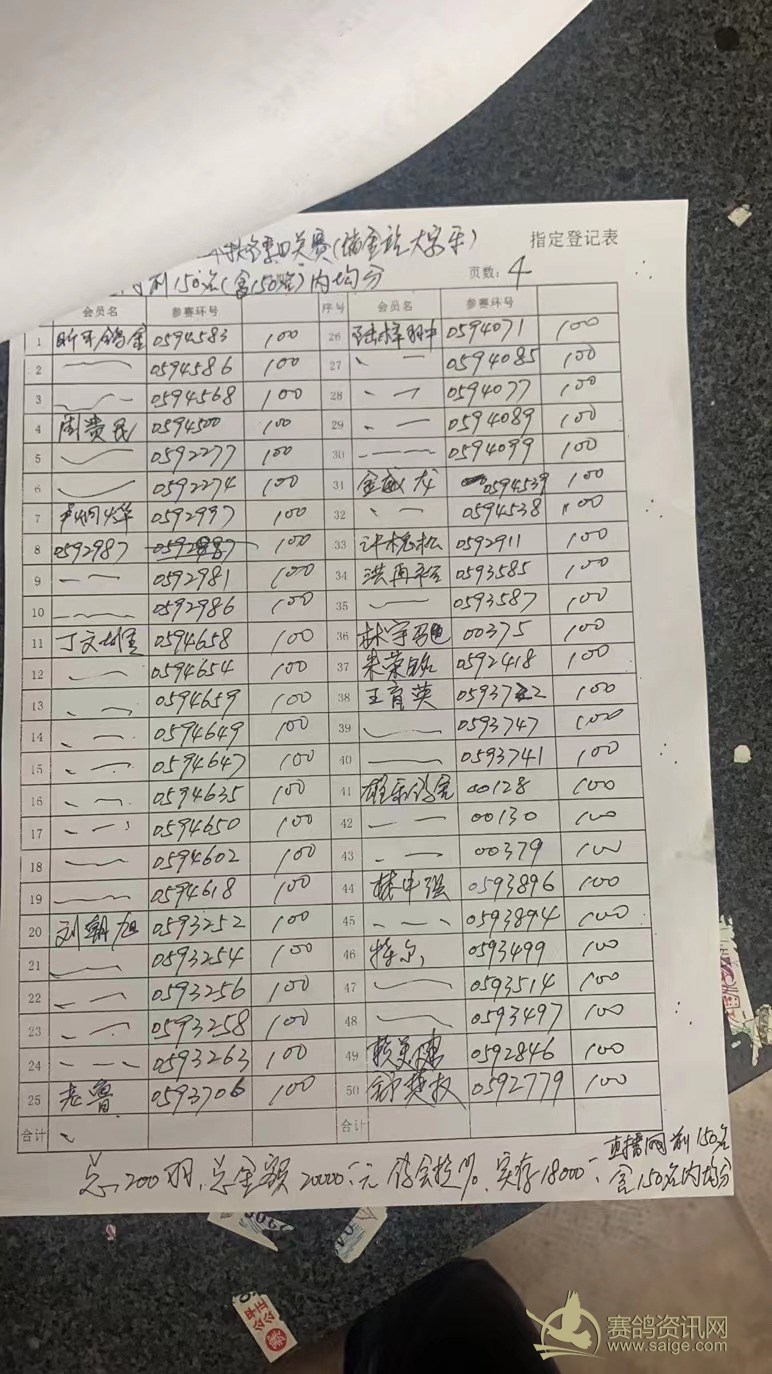 指定登记表
前150名(含150名)内均分
页数: 4
会员名 参赛环号 序号 会员名 参赛环号
1 0594583 100 26 0594071 100
2 0594586 100 27 0594085 100
3 0594568 100 28 0594077 100
4 周费民 0594500 100 29 0594089 100
5 0592277 100 30 0594099 100
6 0592274 100 31 金威龙 0594539 100
7 0592997 100 32 0594538 100
8 0592987 0592987 100 33 许槐松 0592911 100
9 0592981 100 34 0593585 100
10 0592986 100 35 0593587 100
11 0594658 100 36 00375 100
12 0594654 100 37 0592418 100
13 0594659 100 38 王育英 100
14 0594649 100 39 0593747 100
15 0594647 100 40 0593741 100
16 0594635 100 41 00128 100
17 0594650 100 42 00130 100
18 0594602 100 43 00379 100
19 0594618 100 44 林中强 0593896 100
20 刘朝旭 0593252 100 45 0593894 100
21 0593254 100 46 0593499 100
22 0593256 100 47 0593514 100
23 0593258 100 48 0593497 100
24 0593263 100 49 0592846 100
25 老鲁 0593706 100 50 0592779 100
合计 合计
直播网前150名
总200羽、总金额20000元 实存18000 含150名内均分
公平公正
赛鸽资讯网
www.saige.com